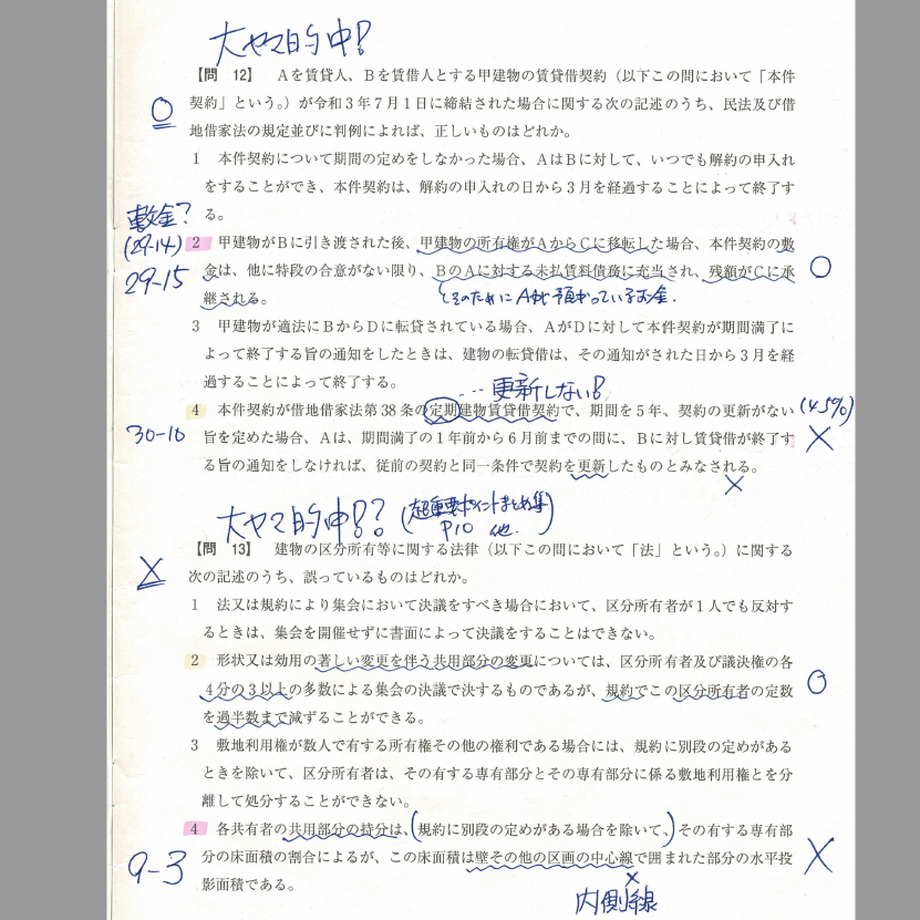 大ヤマ的中!
【問 12】 Aを賃貸人、Bを賃借人とする甲建物の賃貸借契約(以下この問において「本件
契約」という。)が令和3年7月1日に締結された場合に関する次の記述のうち、民法及び借
地借家法の規定並びに判例によれば、正しいものはどれか。
○
1 本件契約について期間の定めをしなかった場合、AはBに対して、いつでも解約の申入れ
をすることができ、本件契約は、解約の申入れの日から3月を経過することによって終了す
る。
敷金?
(29-14)
29-15
2 甲建物がBに引き渡された後、甲建物の所有権がAからCに移転した場合、本件契約の敷
金は、他に特段の合意がない限り、BのAに対する未払賃料債務に充当され、残額がCに承
継される。
○
そのためにA 預かっているお金.
3 甲建物が適法にBからDに転貸されている場合、AがDに対して本件契約が期間満了に
よって終了する旨の通知をしたときは、建物の転貸借は、その通知がされた日から3月を経
過することによって終了する。
…更新しない!
4 本件契約が借地借家法第38条の定期建物賃貸借契約で、期間を5年、契約の更新がない
旨を定めた場合、Aは、期間満了の1年前から6月前までの間に、Bに対し賃貸借が終了す
る旨の通知をしなければ、従前の契約と同一条件で契約を更新したものとみなされる。
30-10
(45%)
×
×
大ヤマ的中!?(超重要ポイントまとめ集)
P10 他.
【問 13】 建物の区分所有等に関する法律(以下この問において「法」という。)に関する
次の記述のうち、誤っているものはどれか。
×
1 法又は規約により集会において決議をすべき場合において、区分所有者が1人でも反対す
るときは、集会を開催せずに書面によって決議をすることはできない。
2 形状又は効用の著しい変更を伴う共用部分の変更については、区分所有者及び議決権の各
4分の3以上の多数による集会の決議で決するものであるが、規約でこの区分所有者の定数
を過半数まで減ずることができる。
○
3 敷地利用権が数人で有する所有権その他の権利である場合には、規約に別段の定めがある
ときを除いて、区分所有者は、その有する専有部分とその専有部分に係る敷地利用権とを分
離して処分することができない。
4 各共有者の共用部分の持分は、(規約に別段の定めがある場合を除いて、)その有する専有部
分の床面積の割合によるが、この床面積は壁その他の区画の中心線で囲まれた部分の水平投
影面積である。
9-3
×
×
内側線